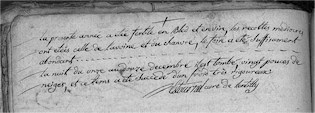 la presente année a été fertile en bled et en vin, les recoltes médiocres
ont étés celle de l'avoine et du chanvre, le foin a été suffisament
abondant.
la nuit du onze au douze decembre il est tombé vingt pouces de
neiges, et ce tems a été suivi d'un froid très rigoureux
curé de